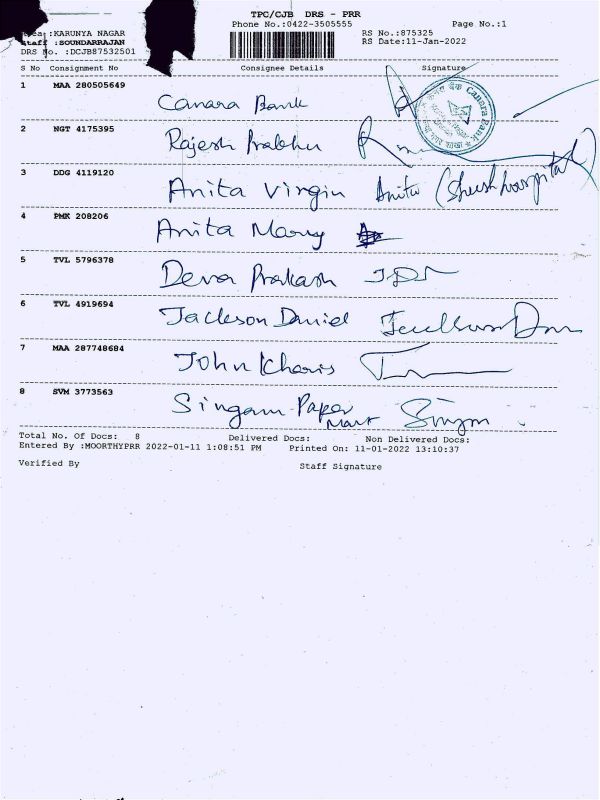 TPC/CJB DRS - PRR
Phone No.:0422-3505555 Page No.:1
:KARUNYA NAGAR RS No.:875325
Staff :SOUNDARRAJAN RS Date:11-Jan-2022
DRS No. :DCJB87532501
S No Consignment No Consignee Details Signature
1 MAA 280505649 Canara Bank
Canara Bank
2 NGT 4175395 Rajesh Prabhu
3 DDG 4119120 Anita Virgin Anita
4 PMK 208206 Anita Mary
5 TVL 5796378 Deva Prakash
6 TVL 4919694 Jackson Daniel
7 MAA 287748684 John Kharis
8 SVM 3773563 Singam Paper
Mart Singam
Total No. Of Docs: 8 Delivered Docs: Non Delivered Docs:
Entered By :MOORTHYPRR 2022-01-11 1:08:51 PM Printed On: 11-01-2022 13:10:37
Verified By Staff Signature